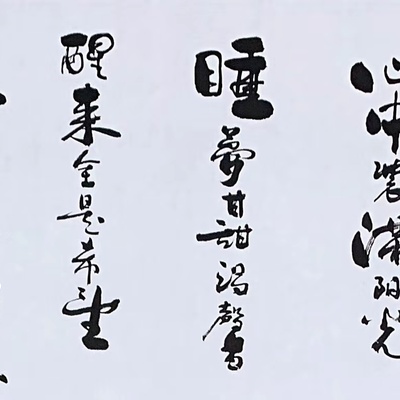 心中装满阳光
睡夢甘甜温馨
醒来全是希望